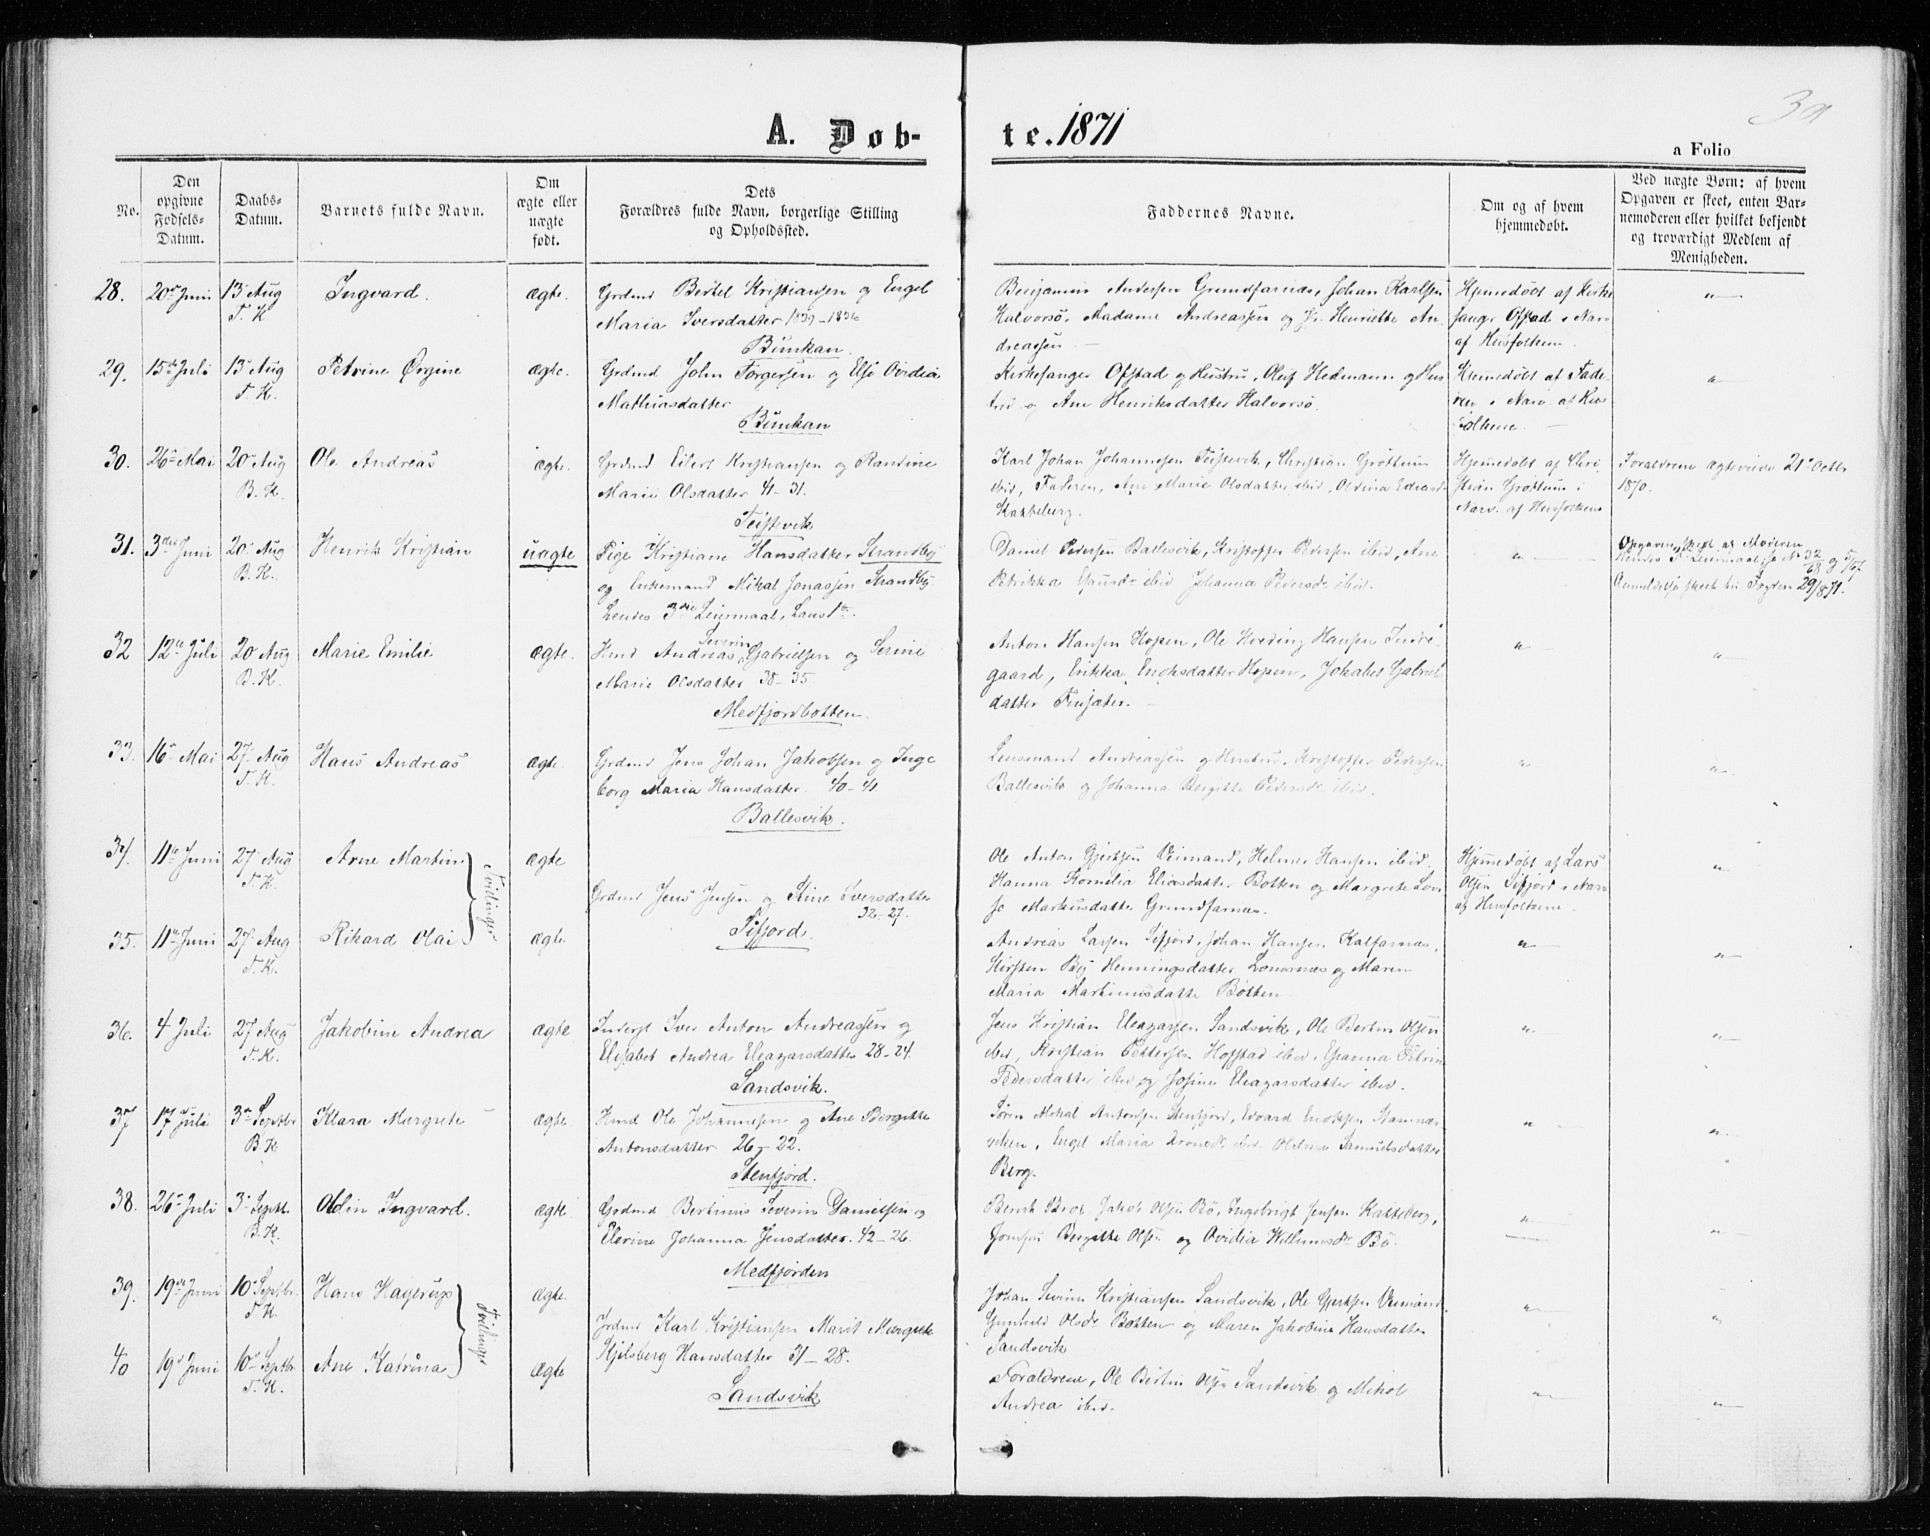 A. Døb-
te. 1871
a Folio
No.
Den opgivne Fødsels-Datum.
Daabs-Datum.
Barnets fulde Navn.
Om ægte eller uægte født.
Dets Forældres fulde Navn, borgerlige Stilling og Opholdssted.
Faddernes Navne.
Om og af hvem hjemmedøbt.
Ved uægte Børn: af hvem Opgaven er skeet, enten Barnemoderen eller hvilket bekjendt og troværdigt Medlem af Menigheden.
28. 20de Juni 13 Aug T. K Ingvard. Ægte.
Grdmd Bertel Kristiansen og Engel
Maria Iversdatter
Bunkan.
Benjamin Andersen Grundfarnæs, Johan Karlsen
Halvorsö, Madame Andreassen og Henriette An
dreassen
Hjemmedøbt af Kirke
sanger Ofstad i Nærv
af Husfolkene.
29. 15de Juli 13 Aug T. K. Petrine Ørgine ægte.
Grdmd John Torgersen og Else Ovidea
Mathiasdatter
Bunkan
Kirkesanger Ofstad og Hustru, Oluf Hedmann og Hus
tru og Ane Henriksdatter Halvorsö.
Hjemmedøbt af Fade
ren i Nærv af Hus
folkene
30. 26 Mai 20 Aug B. K. Ole Andreas ægte.
Grdmd Eilert Kristiansen og Randine
Marie Olsdatter 41-31.
Teistevik
Karl Johan Johannesen Teistevik, Christian Grøttum
ibid, Faderen, Ane Marie Olsdatter ibid,
Katteberg.
Hjemmedøbt af Chri
stian Grøttum i
Nærv. af Husfolkene
Forældrene ægteviede 21 Octbr
1870.
31. 3die Juni 20 Aug B. K. Henrik Kristian uægte
Pige Kristiane Hansdatter Strandby
og Enkemand Mikal Jonassen Strandby
3die Leiermaal,
Daniel Pedersen Ballesvik, Kristoffer Pedersen ibid, Ane
Petrikka ibid Johanna Pedersdr ibid.
Opgaven skeet af Moderen
Anmeldelse skeet til Fogden 29/8 71.
32 12te Juli 20 Aug B. K. Marie Emilie Ægte.
Hmd Andreas Severin Gabrielsen og Serine
Marie Olsdatter 38-35
Medfjordbotten.
Anton Hansen Hopen, Ole Hansen Indre
gaard, Erikka Enoksdatter Hopen, Jokabet Gabriels
datter Finsæter.
33. 16 Mai 27 Aug T. K. Hans Andreas Ægte.
Grdmd Jens Johan Jakobsen og Inge
borg Maria Hansdatter. 40-41
Ballesvik.
Lensmand Andreassen og Hustru, Kristoffer Pedersen
Ballesvik og Johanna Bergitte Pedersdr ibid.
34. 11te Juni 27 Aug T. K. Arne Martin ægte
Tvillinger
Grdmd Jens Jensen og Stine Iversdatter
32-27.
Sifjord
Ole Anton Gjertsen Veimand, Helmer Hansen ibid.
Hanna Kornelia Eliasdatter Botten og Margrete Lovi
se Markusdatter Grundfarnæs.
Hjemmedøbt af Lars
Olsen Sifjord i Nærv
af Husfolkene.
35. 11te Juni 27 Aug T. K. Rikard Olai ægte.
Andreas Larsen Sifjord, Johan Hansen Kalfarnæs,
Kirsten Henningsdatter og Maren
Maria Martinusdatter Botten.
36. 4 Juli 27 Aug T. K. Jakobine Andrea ægte
Inderst Iver Anton Andreassen og
Elisabet Andrea Eleazarsdatter 28-24.
Sandsvik.
Jens Kristian Eleazarsen Sandsvik, Ole Bertin Olsen
ibid, Kristian Pettersen Hofstad ibid, Petrine
Pedersdatter ibid og Josine Eleazarsdatter ibid.
37 17 Juli 3 Septbr B K Klara Margrete ægte
Hmd Ole Johannesen og Ane Bergitte
Antonsdatter 26-22.
Stenfjord.
Søren Mikal Antonsen Stenfjord, Edvard Enoksen
Engel Maria ibid. Samuelsdatter
Berg.
38. 26 Juli 3 Septbr. B. K. Odin Ingvard. ægte
Grdmd Bertinus Severin Danielsen og
Elevine Johanna Jensdatter. 42-26.
Medfjorden
Bernt Jakob Olsen Bö, Ingebrigt Jensen Katteberg,
Jomfru Bergitte Olsen og Ovidia Bö.
39. 19de Juni 10 Septbr. T. K. Hans Hagerup ægte.
Tvillinger
Grdmd Karl Kristiansen Marit Margrete
Kjelsberg Hansdatter 31-28.
Sandsvik
Johan Severin Kristiansen Sandsvik, Ole Gjertsen Veimand
Gunhild Olsdr Botten og Maren Jakobine Hansdatter
Sandsvik
40 19 Juni 10 Septbr T. K. Ane Katrina ægte
Forældrene, Ole Bertin Olsen Sandsvik og Mikol
Andrea ibid.